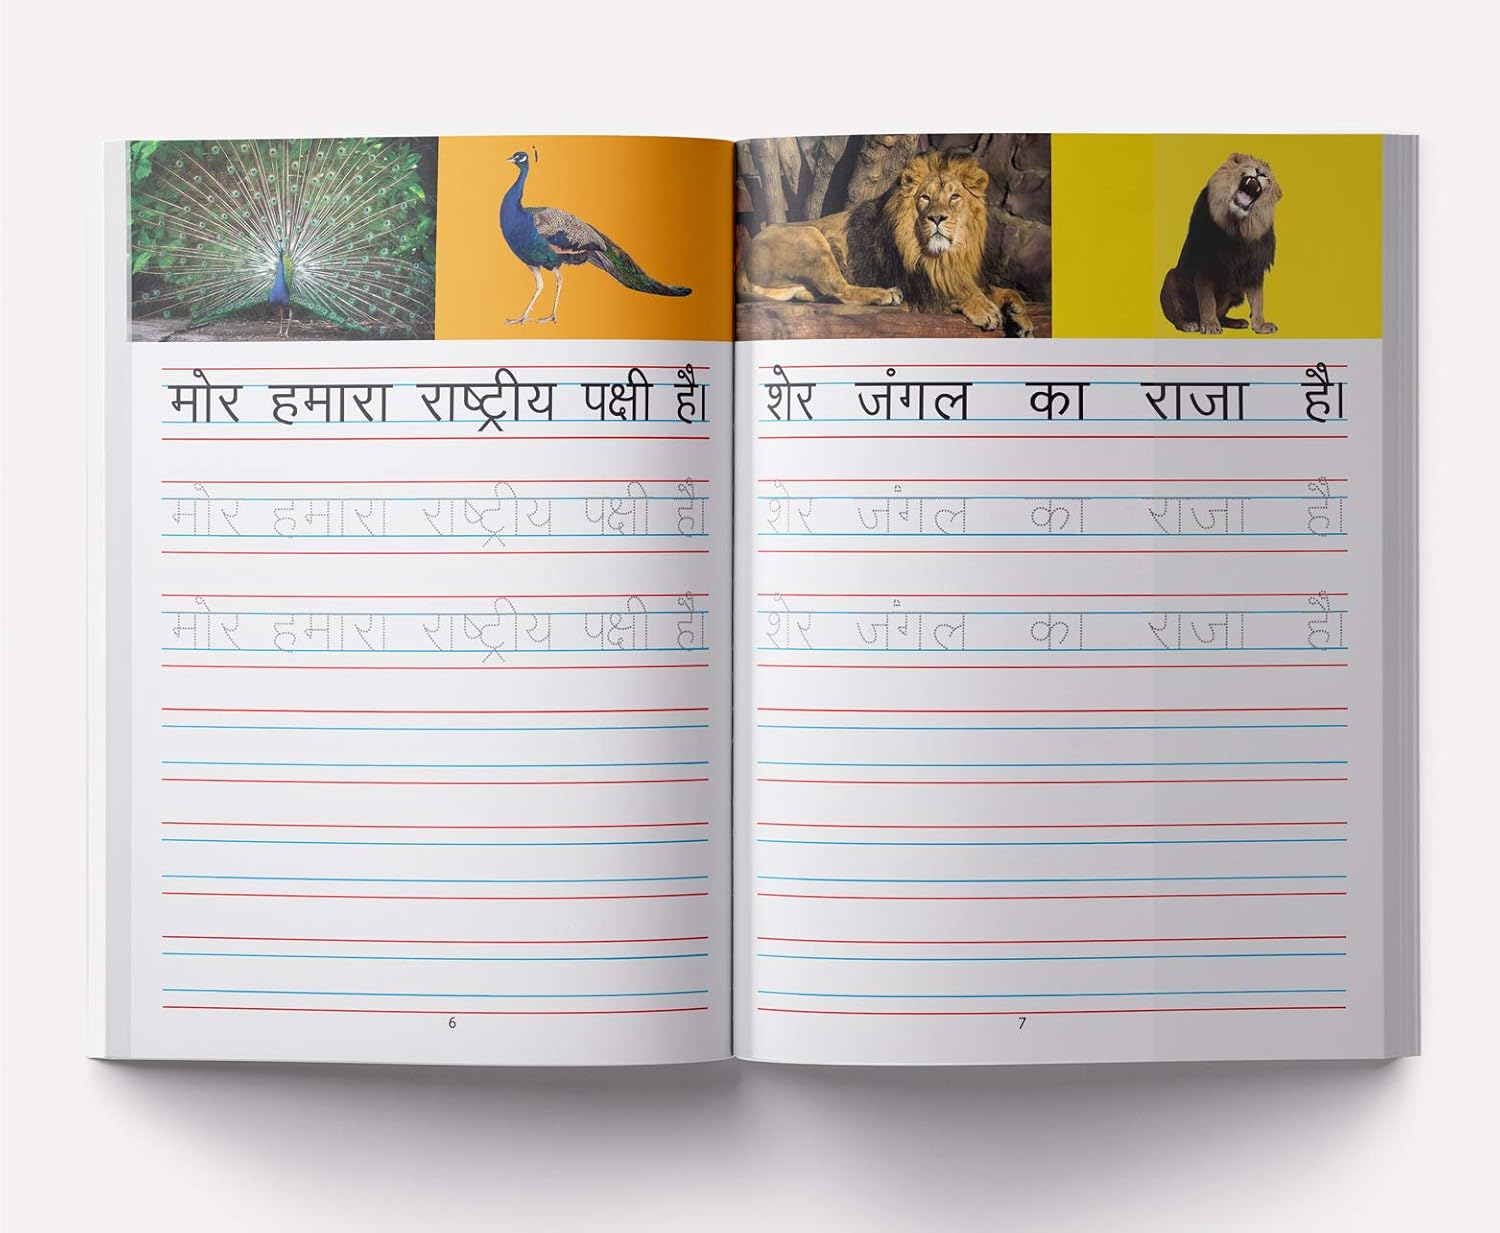 मोर हमारा राष्ट्रीय पक्षी है।
मोर हमारा राष्ट्रीय पक्षी है।
मोर हमारा राष्ट्रीय पक्षी है।
6
शेर जंगल का राजा है।
शेर जंगल का राजा है।
शेर जंगल का राजा है।
7